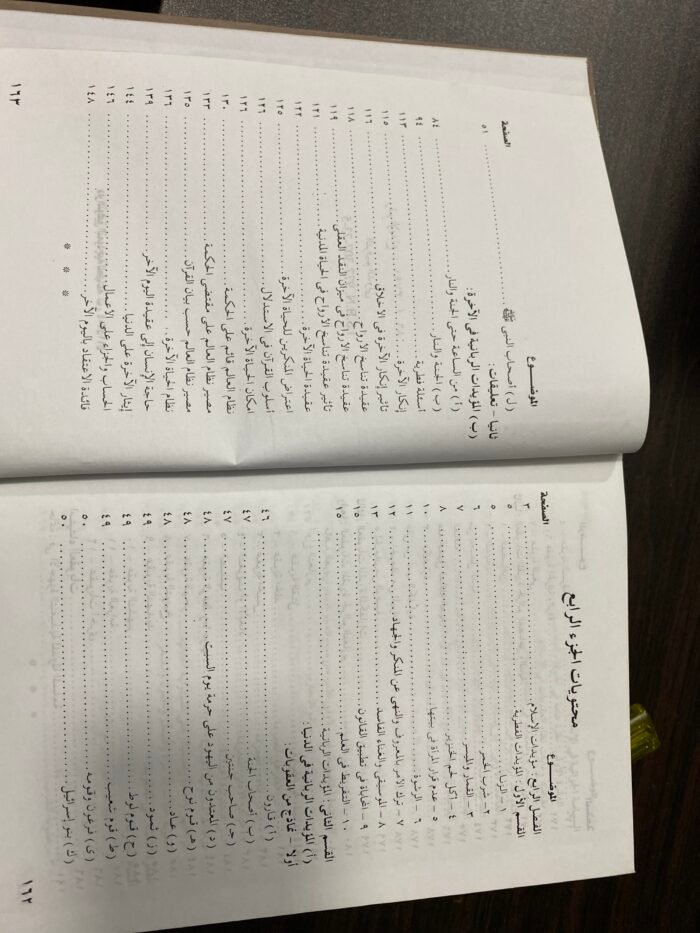 محتويات الجزء الرابع
الموضوع الصفحة
الفصل الرابع: مؤيدات الإسلام ٣
القسم الأول: المؤيدات الفطرية ٥
١ - الزنـا ٥
٢ - شرب الخمر ٦
٣ - القمار والميسر ٧
٤ - أكل لحم الخنزير ٨
٥ - عدم قرار المرأة فى بيتها ١٠
٦ - الرشوة ١١
٧ - ترك الأمر بالمعروف والنهى عن المنكر والجهاد ١٢
٨ - الموسيقى والغناء الفاسد ١٣
٩ - المحاباة فى تطبيق القانون ١٥
١٠ - التفريط فى العلم ١٥
القسم الثانى: المؤيدات الربانية
(أ) المؤيدات الربانية فى الدنيا:
أولا - نماذج من العقوبات:
(أ) قارون ٤٦
(ب) أصحاب الجنة ٤٧
(جـ) صاحب جنتين ٤٧
(د) المعتدون من اليهود على حرمة يوم السبت ٤٨
(هـ) قوم نوح ٤٨
(و) عـاد ٤٨
(ز) ثمود ٤٩
(ح) قوم لوط ٤٩
(ط) قوم شعيب ٤٩
(ى) فرعون وقومه ٥٠
(ك) بنو إسرائيل ٥٠
١٦٢
الموضـــوع الصفحة
(ل) أصحاب النبى ﷺ ٥١
ثانيا - تعليقات:
(ب) المؤيدات الربانية فى الآخرة:
(أ) من الساعة حتى الجنة والنار ٨٤
(ب) الجنة والنـار ٩٤
أسئلة فطرية
إنكار الآخرة ١١٣
تأثير إنكار الآخرة فى الأخلاق ١١٥
عقيدة تناسخ الأرواح ١١٦
عقيدة تناسخ الأرواح فى ميزان النقد العقلى ١١٨
تأثير عقيدة تناسخ الأرواح فى الحياة المدنية ١١٩
عقيدة الحياة الآخرة ١٢١
اعتراض المنكرين للحياة الآخرة ١٢٢
أسلوب القرآن فى الاستدلال ١٢٥
إمكان الحياة الآخرة ١٢٦
نظام العالم قائم على الحكمة ١٢٦
مصير نظام العالم على مقتضى الحكمة ١٣٠
مصير نظام العالم حسب بيان القرآن ١٣٣
نظام الحياة الآخرة ١٣٥
حاجة الإنسان إلى عقيدة اليوم الآخر ١٣٦
إيثار الآخرة على الدنيا ١٣٩
الحساب والجزاء على الأعمال ١٤٤
فائدة الاعتقاد باليوم الآخر ١٤٦
١٤٨
* * *
١٦٣